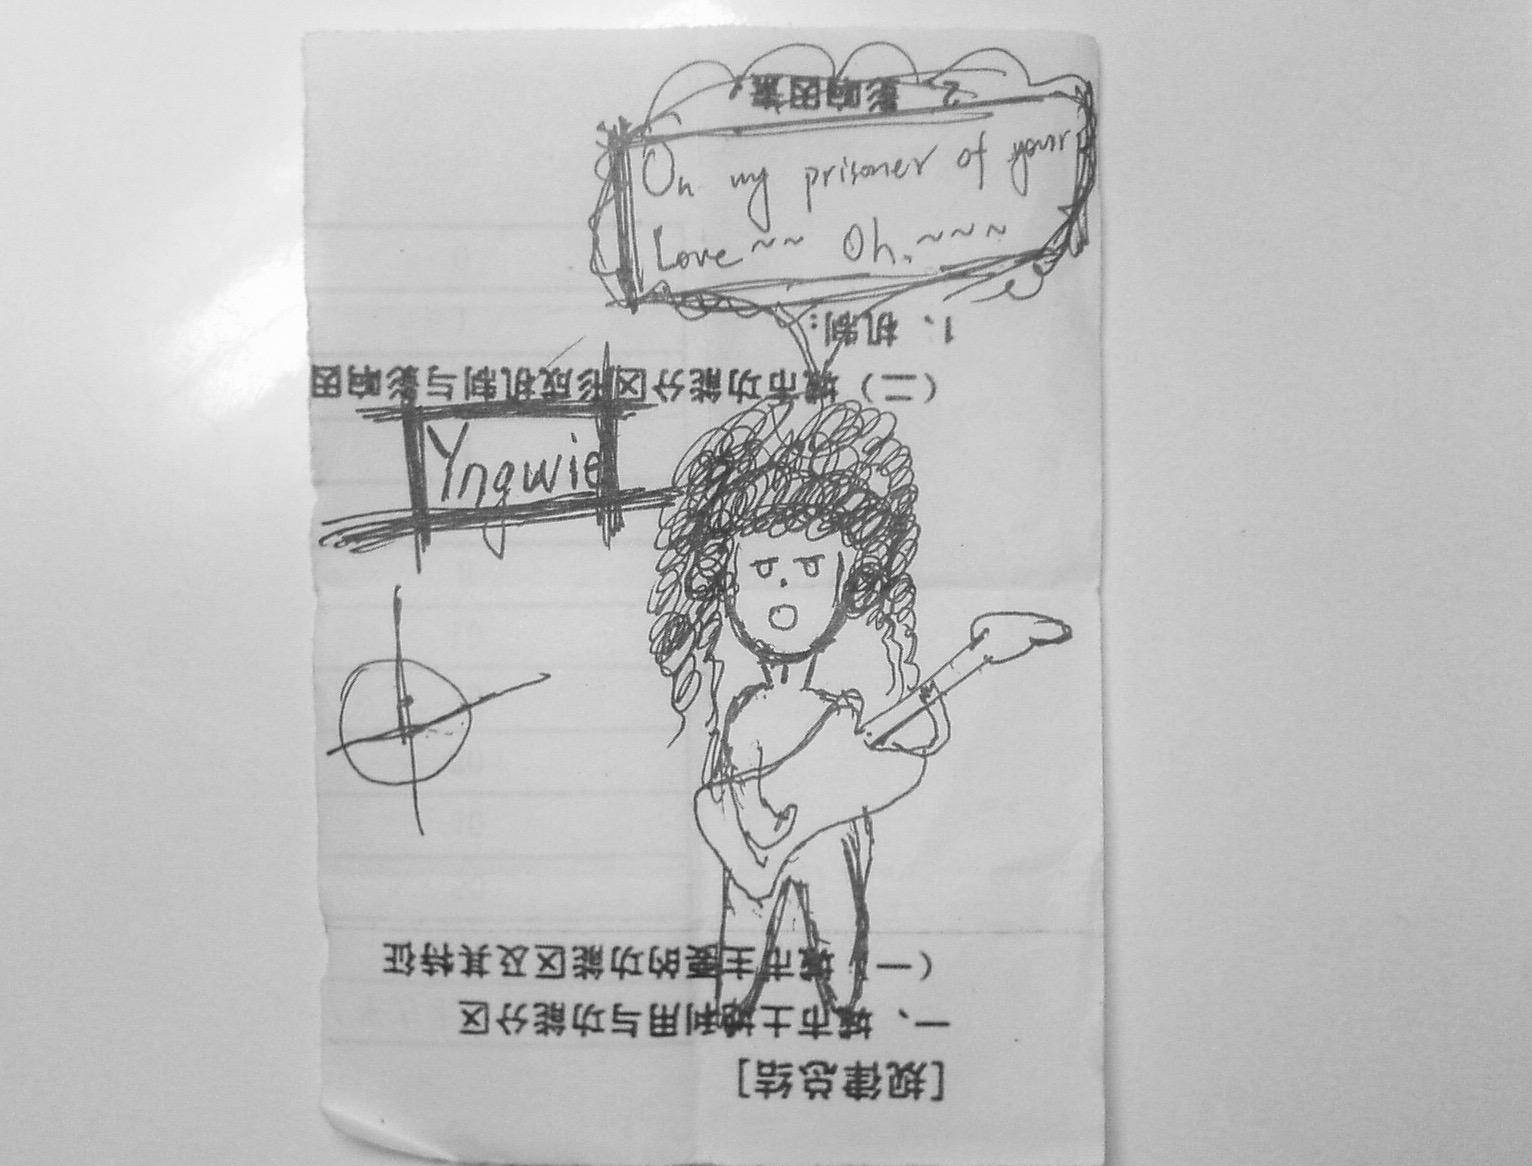 On my prisoner of your
Love~~ Oh.~~~
Yngwie
[规律总结]
一、城市土地利用与功能分区
（一）城市主要的功能区及其特征
（二）城市功能分区形成机制与影响因
1、机制：
2、影响因素：